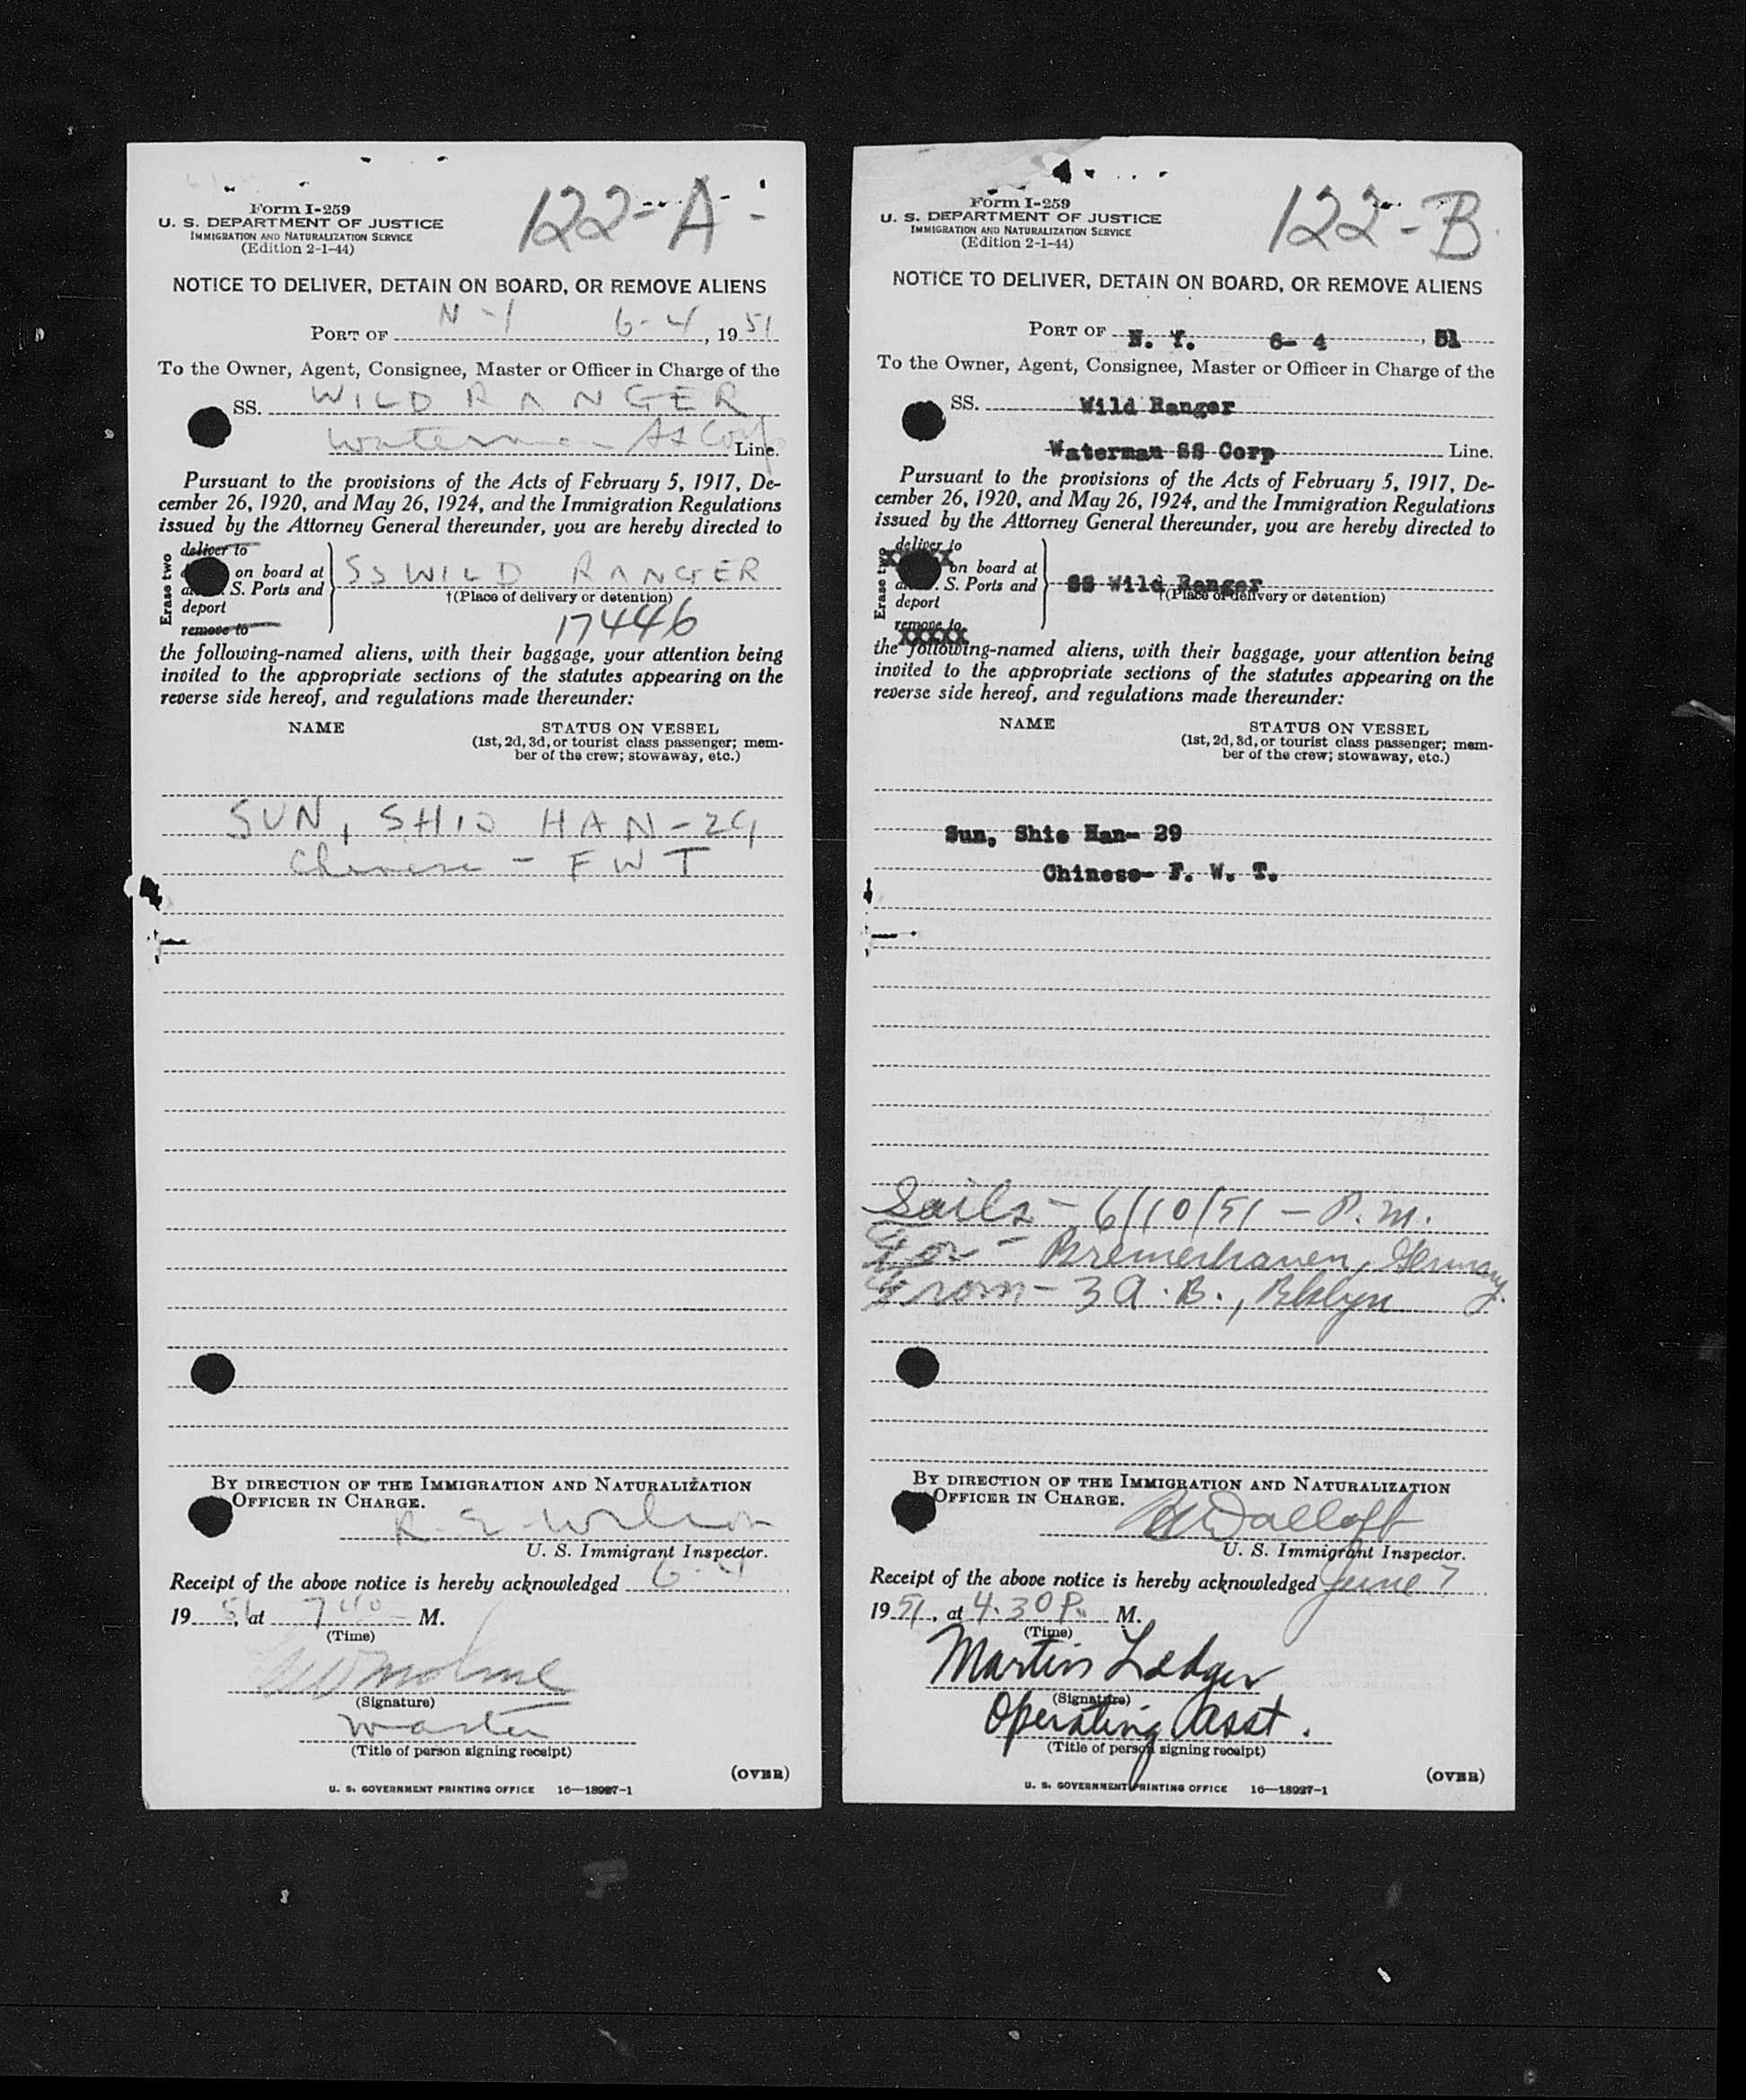 122-A
Form I-259
U. S. DEPARTMENT OF JUSTICE
IMMIGRATION AND NATURALIZATION SERVICE
(Edition 2-1-44)
NOTICE TO DELIVER, DETAIN ON BOARD, OR REMOVE ALIENS
PORT OF N-Y 6-4, 1951
To the Owner, Agent, Consignee, Master or Officer in Charge of the
SS. WILD RANGER
Waterman SS Corp Line.
Pursuant to the provisions of the Acts of February 5, 1917, De-
cember 26, 1920, and May 26, 1924, and the Immigration Regulations
issued by the Attorney General thereunder, you are hereby directed to
Erase two
deliver to
on board at
S. Ports and
deport
remove to
SS WILD RANGER
†(Place of delivery or detention)
17446
the following-named aliens, with their baggage, your attention being
invited to the appropriate sections of the statutes appearing on the
reverse side hereof, and regulations made thereunder:
NAME STATUS ON VESSEL
(1st, 2d, 3d, or tourist class passenger; mem-
ber of the crew; stowaway, etc.)
SUN, SHIO HAN-29
Chinese - FWT
BY DIRECTION OF THE IMMIGRATION AND NATURALIZATION
OFFICER IN CHARGE.
R. E. Wilson
U. S. Immigrant Inspector.
Receipt of the above notice is hereby acknowledged 6-4
1951, at 740 M.
(Time)
(Signature)
Master
(Title of person signing receipt)
(OVER)
U. S. GOVERNMENT PRINTING OFFICE 16—18927-1
122-B
Form I-259
U. S. DEPARTMENT OF JUSTICE
IMMIGRATION AND NATURALIZATION SERVICE
(Edition 2-1-44)
NOTICE TO DELIVER, DETAIN ON BOARD, OR REMOVE ALIENS
PORT OF N. Y. 6- 4, 51
To the Owner, Agent, Consignee, Master or Officer in Charge of the
SS. Wild Ranger
Waterman SS Corp Line.
Pursuant to the provisions of the Acts of February 5, 1917, De-
cember 26, 1920, and May 26, 1924, and the Immigration Regulations
issued by the Attorney General thereunder, you are hereby directed to
Erase two
deliver to
on board at
S. Ports and
deport
remove to
SS Wild Ranger
†(Place of delivery or detention)
the following-named aliens, with their baggage, your attention being
invited to the appropriate sections of the statutes appearing on the
reverse side hereof, and regulations made thereunder:
NAME STATUS ON VESSEL
(1st, 2d, 3d, or tourist class passenger; mem-
ber of the crew; stowaway, etc.)
Sun, Shio Han- 29
Chinese- F. W. T.
Sails - 6/10/51 - P.M.
For - Bremerhaven, Germany.
From - 3 A.B., Bklyn
BY DIRECTION OF THE IMMIGRATION AND NATURALIZATION
OFFICER IN CHARGE.
U. S. Immigrant Inspector.
Receipt of the above notice is hereby acknowledged June 7
1951, at 4.30 P. M.
(Time)
Martin Ledger
(Signature)
Operating Asst.
(Title of person signing receipt)
(OVER)
U. S. GOVERNMENT PRINTING OFFICE 16—18927-1